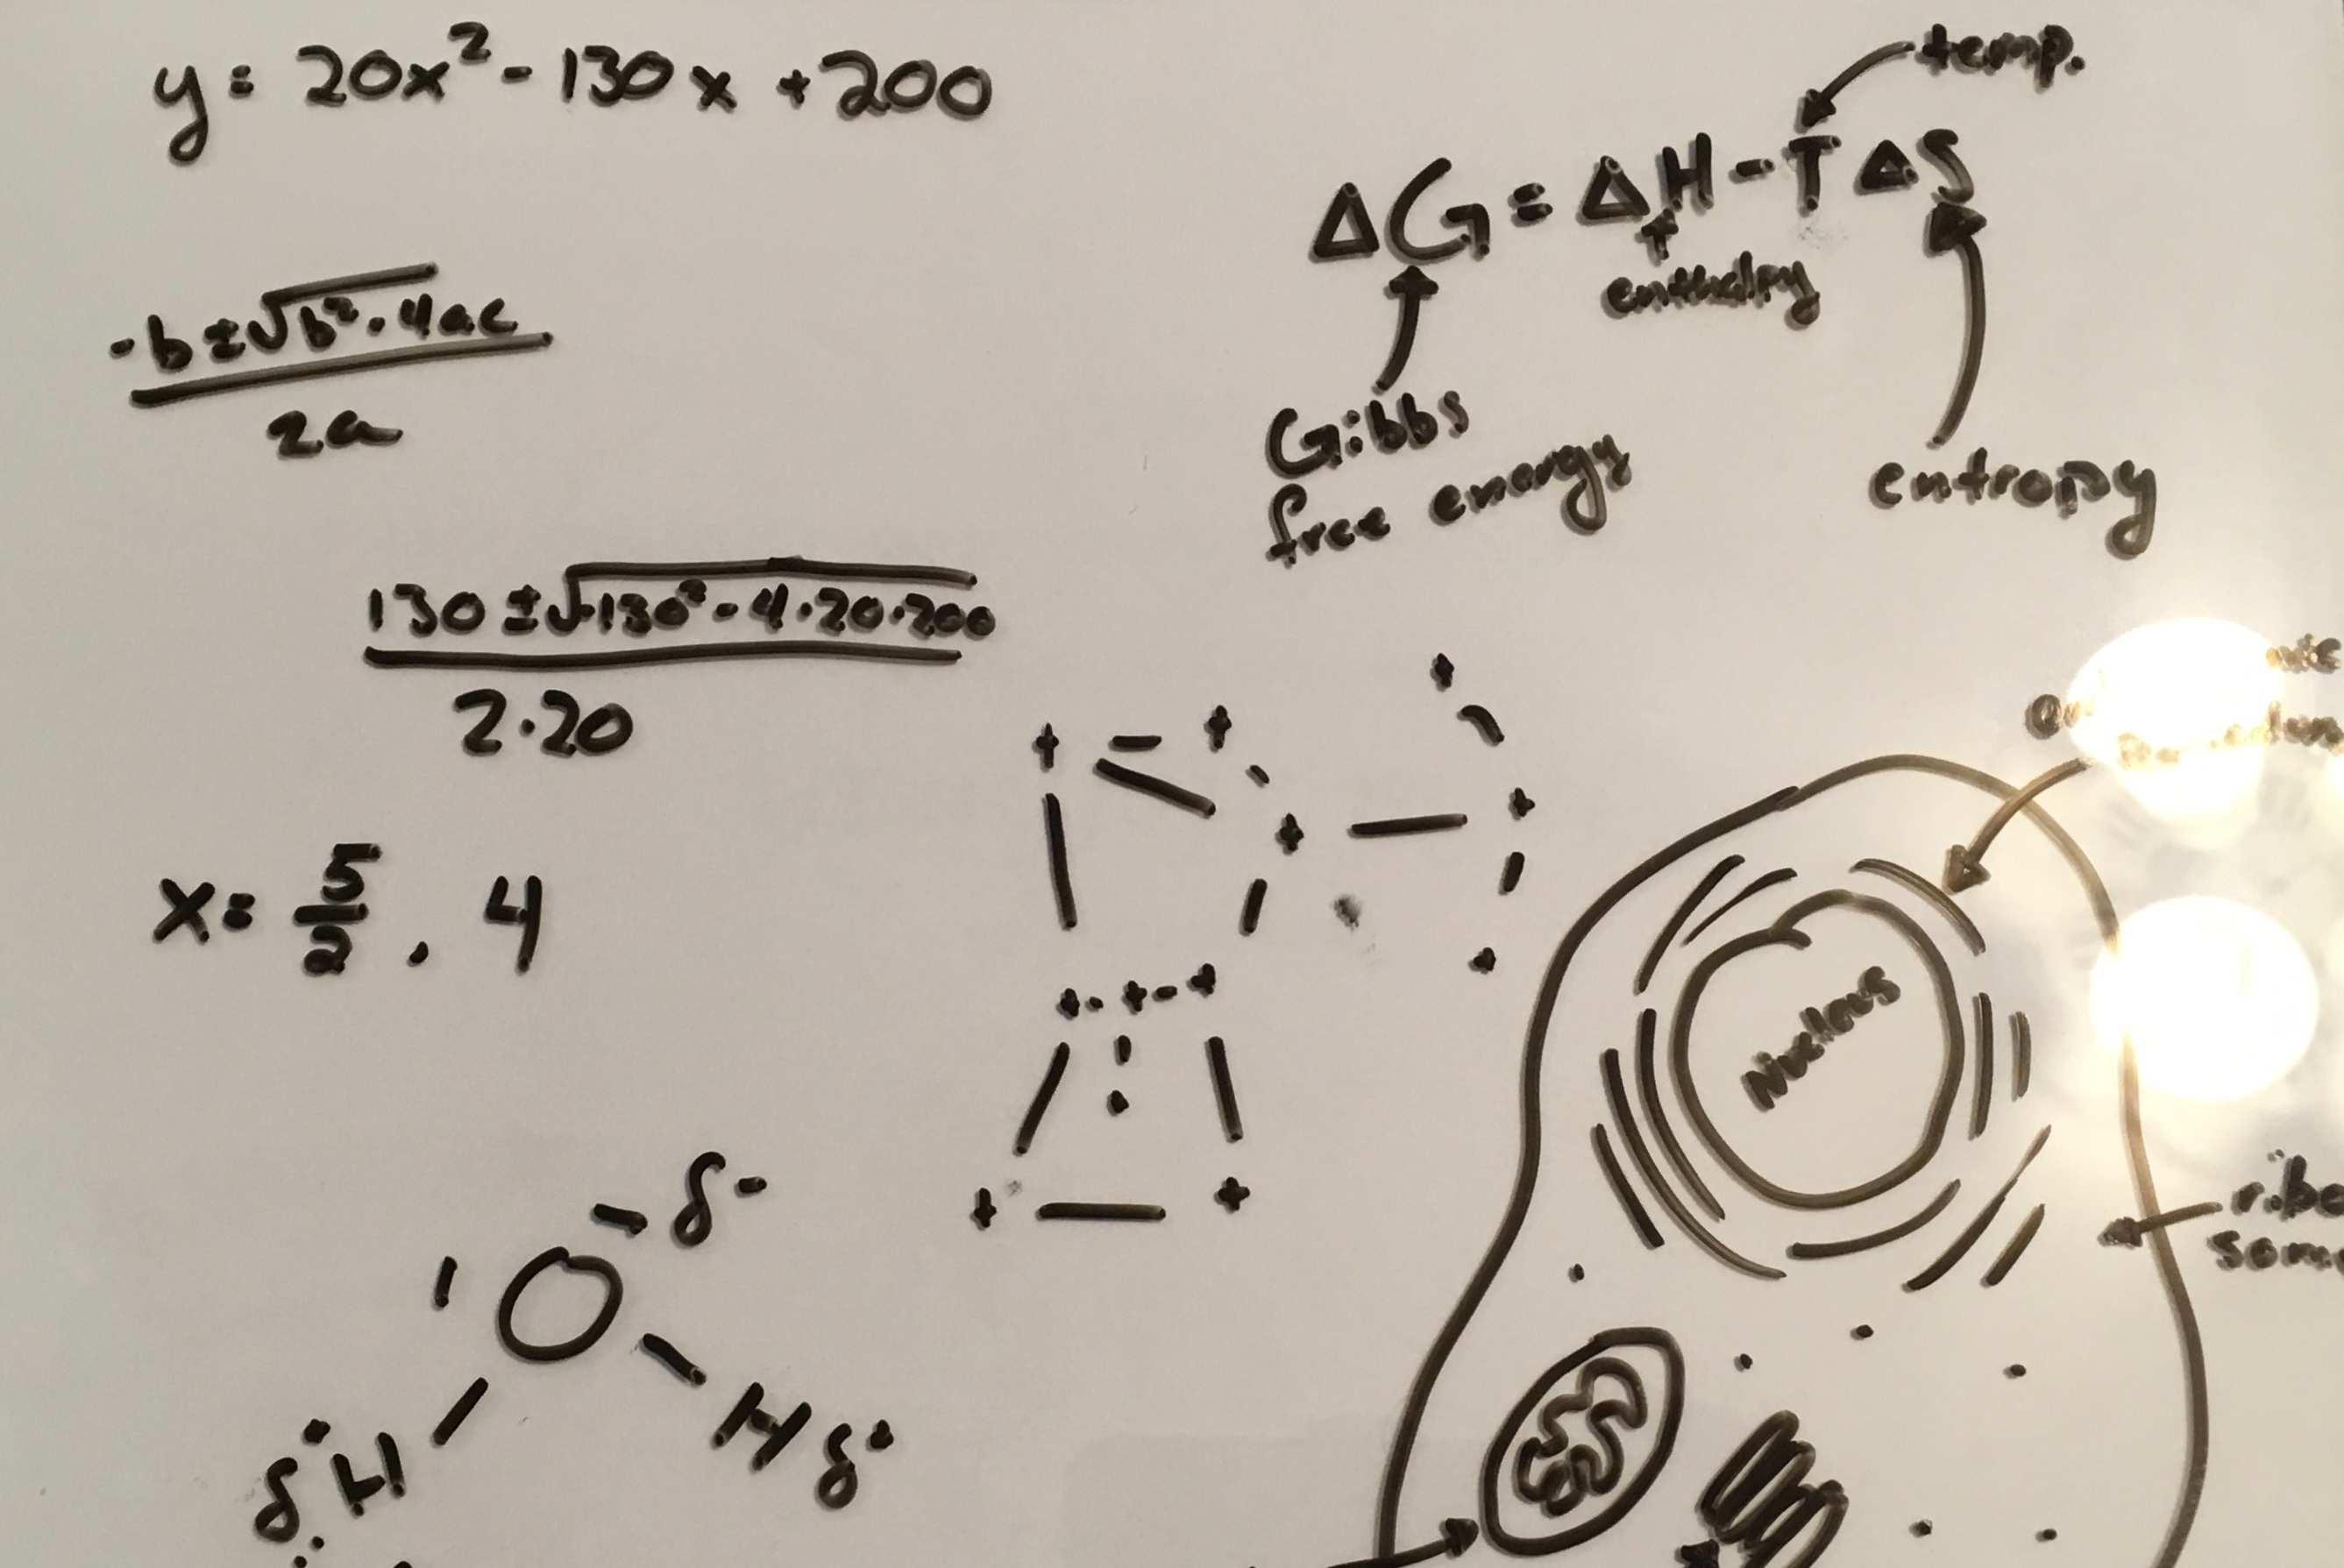 y = 20x² - 130x + 200
-b ± √b² - 4ac
2a
130 ± √-130² - 4·20·200
2·20
x = 5/2, 4
temp.
ΔG = ΔH - TΔS
enthalpy
Gibbs
free energy
entropy
Nucleus
ribo
som
δ-
O
H δ+
δ+ H